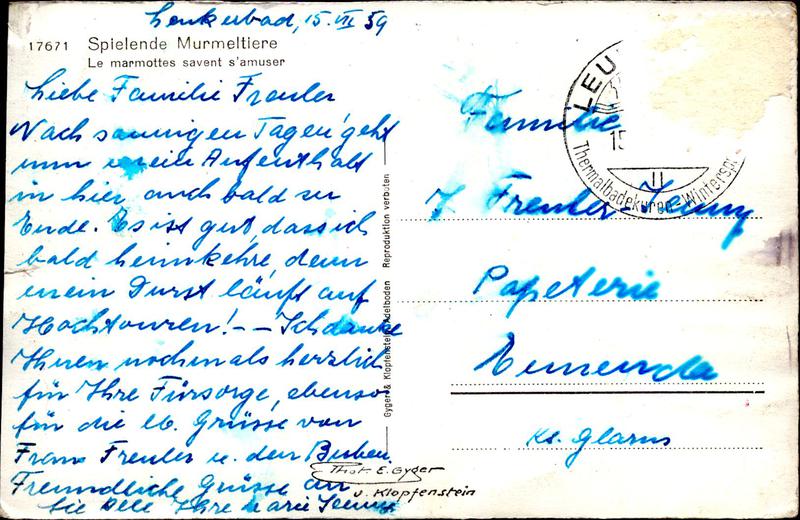 Leukerbad, 15. VII 59
17671 Spielende Murmeltiere
Le marmottes savent s'amuser
Liebe Familie Freuler
Nach sonnigen Tagen geht
nun mein Aufenthalt
in hier auch bald zu
Ende. Es ist gut, dass ich
bald heimkehre, denn
mein Durst läuft auf
Hochtouren! -- Ich danke
Ihnen nochmals herzlich
für Ihre Fürsorge, ebenso
für die lb. Grüsse von
Frau Freuler u. den Buben.
Freundliche Grüsse an
Sie alle Ihre Marie Jenny
Gyger & Klopfenstein, Adelboden Reproduktion verboten
Phot. E. Gyger
u. Klopfenstein
LEU
15
Thermalbadekuren - Winterspo
11
Familie
J. Freuler-Jenny
Papeterie
Ennenda
Kt. Glarus